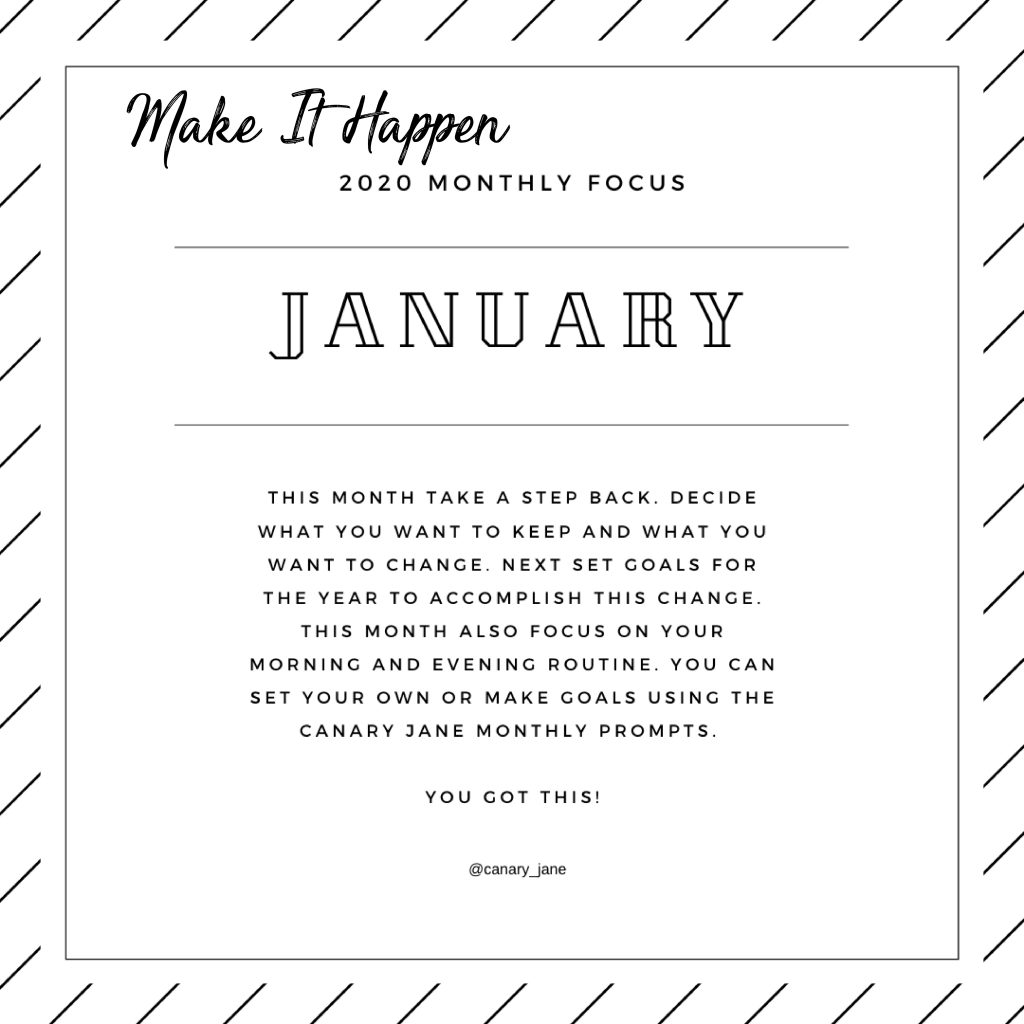 Make It Happen
2020 MONTHLY FOCUS
JANUARY
THIS MONTH TAKE A STEP BACK. DECIDE
WHAT YOU WANT TO KEEP AND WHAT YOU
WANT TO CHANGE. NEXT SET GOALS FOR
THE YEAR TO ACCOMPLISH THIS CHANGE.
THIS MONTH ALSO FOCUS ON YOUR
MORNING AND EVENING ROUTINE. YOU CAN
SET YOUR OWN OR MAKE GOALS USING THE
CANARY JANE MONTHLY PROMPTS.
YOU GOT THIS!
@canary_jane